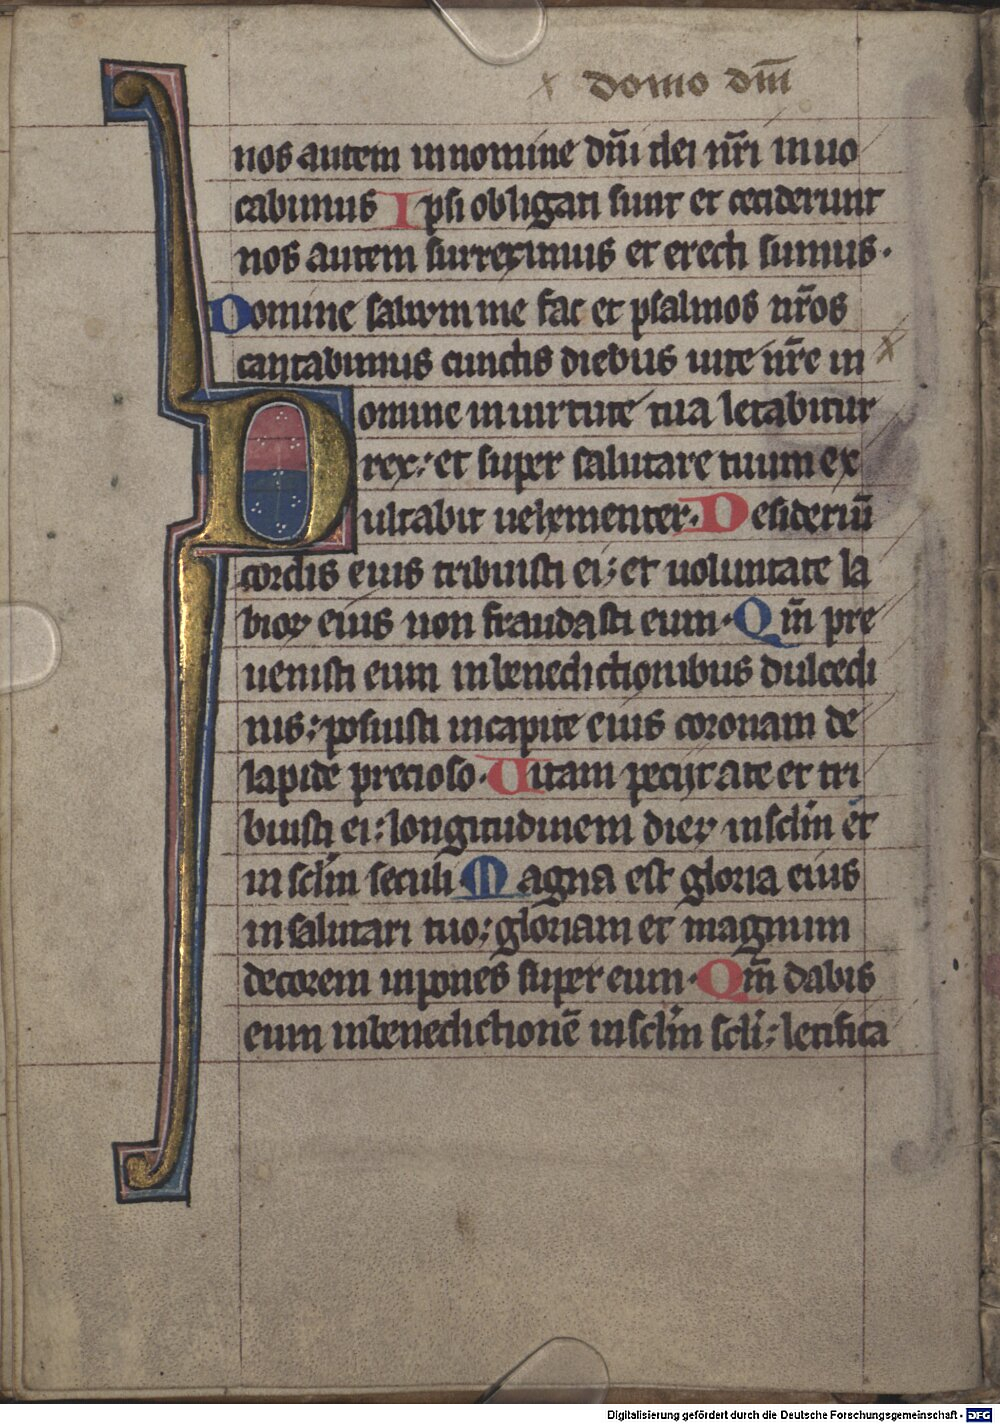 x domo dn̄i
nos autem in nomine dn̄i dei nr̄i inuo
cabimus Ipsi obligati sunt et ceciderunt
nos autem surreximus et erecti sumus.
Domine saluum me fac et psalmos nr̄os
cantabimus cunctis diebus uite nr̄e in x
Domine in uirtute tua letabitur
rex: et super salutare tuum ex
ultabit uehementer. Desideriū
cordis eius tribuisti ei; et uoluntate la
bioꝝ eius non fraudasti eum. Qm̄ pre
uenisti eum in benedictionibus dulcedi
nis: posuisti in capite eius coronam de
lapide precioso. Uitam peciit a te et tri
buisti ei: longitudinem dieꝝ in sclm̄ et
in sclm̄ seculi Magna est gloria eius
in salutari tuo; gloriam et magnum
decorem inpones super eum. Qm̄ dabis
eum in benedictionē in sclm̄ scli: letifica
Digitalisierung gefördert durch die Deutsche Forschungsgemeinschaft - DFG